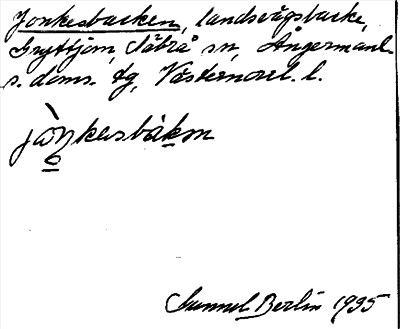 Jonkesbacken, landsvägsbacke,
Gryttjom, Säbrå sn, Ångermanl.
s. doms. tg, Västernorrl. l.
Sunnel Berlin 1935